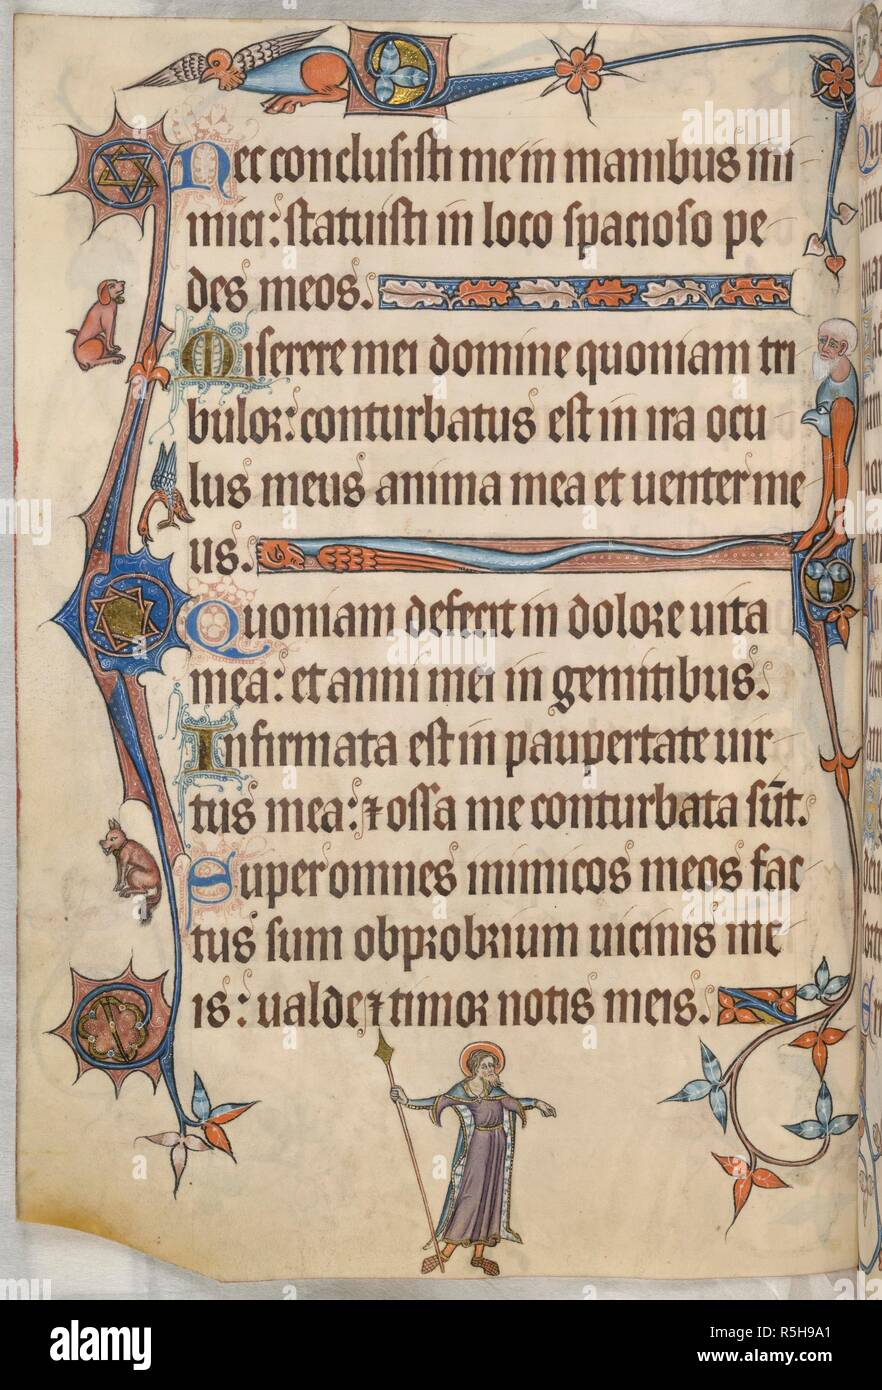 Nec conclusisti me in manibus ini
mici: statuisti in loco spacioso pe
des meos.
Miserere mei domine quoniam tri
bulor: conturbatus est in ira ocu
lus meus anima mea et uenter me
us.
Quoniam defecit in dolore uita
mea: et anni mei in gemitibus.
Infirmata est in paupertate uir
tus mea: ⁊ ossa me conturbata sūt.
Super omnes inimicos meos fac
tus sum obprobrium uicinis me
is: ualde ⁊ timor notis meis.
alamy
alamy stock photo
Image ID: R5H9A1
www.alamy.com